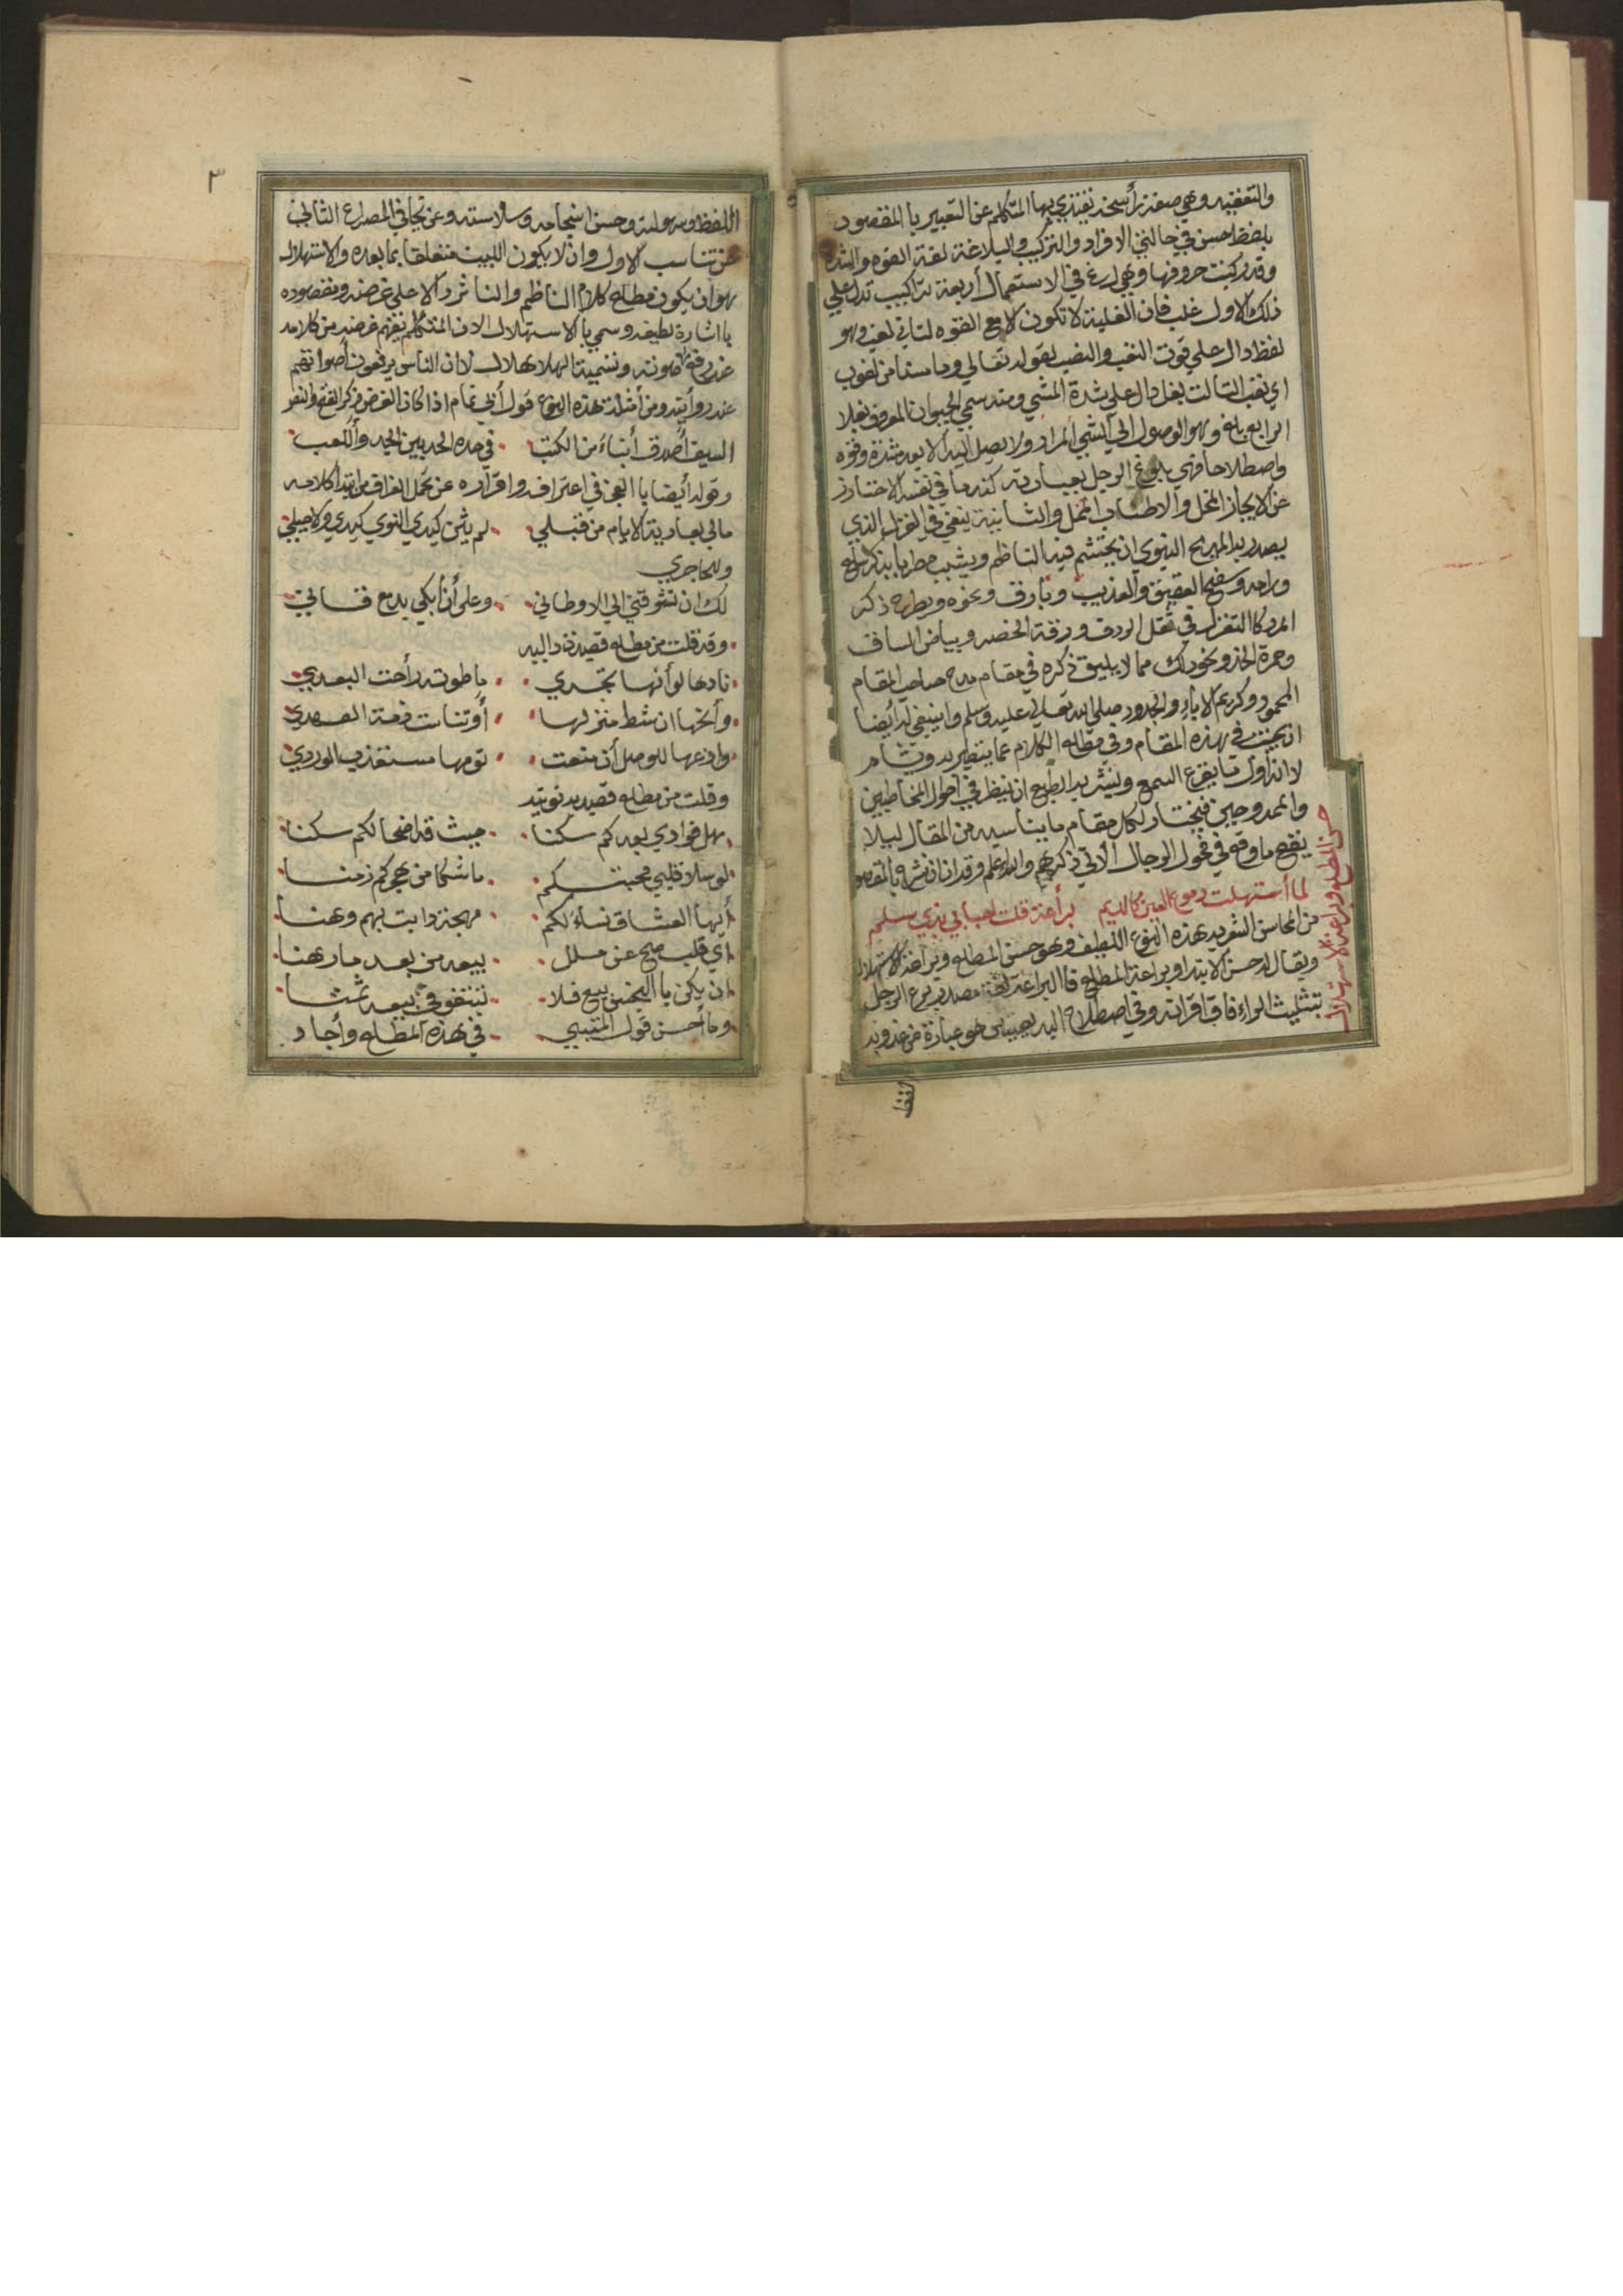 والتعقيد وهي صفة رأسخة يقتدي بها المتكلم عن التعبير باالمقصود
بلفظ حسن في حالتي الافراد والتركيب والبلاغة لغة القوه والشدة
وقد ركبت حروفها وهي لرغ في الاستعمال أربعة تراكيب تدل علي
ذلك الاول غلب فان الغلبة لا تكون الا مع القوه لثاني لغب وهو
لفظ دال علي قوت التعب والنصب لقوله تعالي وما مسنا من لغوب
اي تعب الثالث بغل دال علي شدة المشي ومنه سمي الحيوان المعروف بغلا
الرابع بلغ وهو الوصول الي الشيئ المراد ولا يصل اليه الا بعد شدة وقوه
واصطلاحا فهي بلوغ الرجل بعبارته كنه ما في نفسه الاختارز
عن الايجاز المخل والاطناب الممل والثانية ينبغي في الغزل الذي
يصدر به المديح النبوي ان يحتشم فيه الناظم ويشبب مطربا بذكر سلع
ورامه وسفح العقيق والعذيب وبارق ونحوه ويطرح ذكر
المرد كاالتغزل في ثقل الردف ورقة الخصر وبياض الساق
وحمرة الخد ونحو ذلك مما لا يليق ذكره في مقام مدح صاحب المقام
المحمود وكريم الاباء والجدود صلي الله تعالي عليه وسلم وينبغي له أيضا
ان يجتنب في هذه المقام وفي مطالع الكلام عما يتطير به ويتشأم
لانه اول ما يقرع السمع وينشر به الطبع ان ينظر في احوال المخاطبين
والممدوحين فيختار لكل مقام ما يناسبه من المقال ليلا
يقع ما وقع في فحول الرجال الاتي ذكرهم والله اعلم وقد ان ان نشرح بالمقصو
لما أستهلت دموع العين كالديم براعة قلت احبابي بذي سلم
من المحاسن الشعريه هذه النوع اللطيف وهو حسن المطلع وبراعة الاستهلال
ويقال له حسن الابتدا وبراعة المطلع فاالبراعة لغة مصدر برع الرجل
بتثليث الراء فاق اقرانه وفي اصطلاح البديعيين هو عبارة عن عذوبة
حسن المطلع وبراعة الاستهلال
اللفظ
٣
اللفظ وسهولته وحسن انسجامه وسلاسته وعن تجافي المصراع الثاني
عن تناسب الاول وان لا يكون البيت متعلقا بما بعده والاستهلال
هو ان يكون مطلع كلام الناظم والناثر دالا علي غرضه ومقصوده
بااشارة لطيفه وسمي باالاستهلال لان المتكلم يفهم غرضه من كلامه
عند رفع صوته وتسمية الهلال هلال لان الناس يرفعون أصواتهم
عند رؤيته ومن أمثلة هذه النوع قول أبي تمام اذا كان الغرض ذكر الفتح والنصر
السيف أصدق أنباء من الكتب في حده الحد بين الجد واللعب
وقوله أيضا باالعجز في اعترافه واقراره عن تحمل الفراق من ابتدا كلامه
مالي بعادية الايام من قبلي لم يثن كيدي النوي كيدي ولا حيلي
وللحاجري
لك ان تشوقني الي الاوطاني وعلي أن أبكي بدمع قاني
وقد قلت من مطلع قصيدة داليه
نادها لو أنها تجدي ما طوته رأحت البعدي
وأنخها ان شط منزلها أو تناست ذمة العهدي
وادعها للوصل أن منعت نومها مستعذب الوردي
وقلت من مطلع قصيده نونيه
هل فوادي بعدكم سكنا حيث قد اضحا لكم سكنا
لو سلا قلبي محبتكم ما شكا من هجركم زمنا
أيها العشاق نساءلكم مهجة دابت بهم وعنا
اي قلب صح عن ملل بيعه من بعد ما رهنا
ان يكن ياالبخس بيع فلا تبتغو في بيعه ثمنا
وما أحسن قول المتنبي في هذه المطلع وأجاد